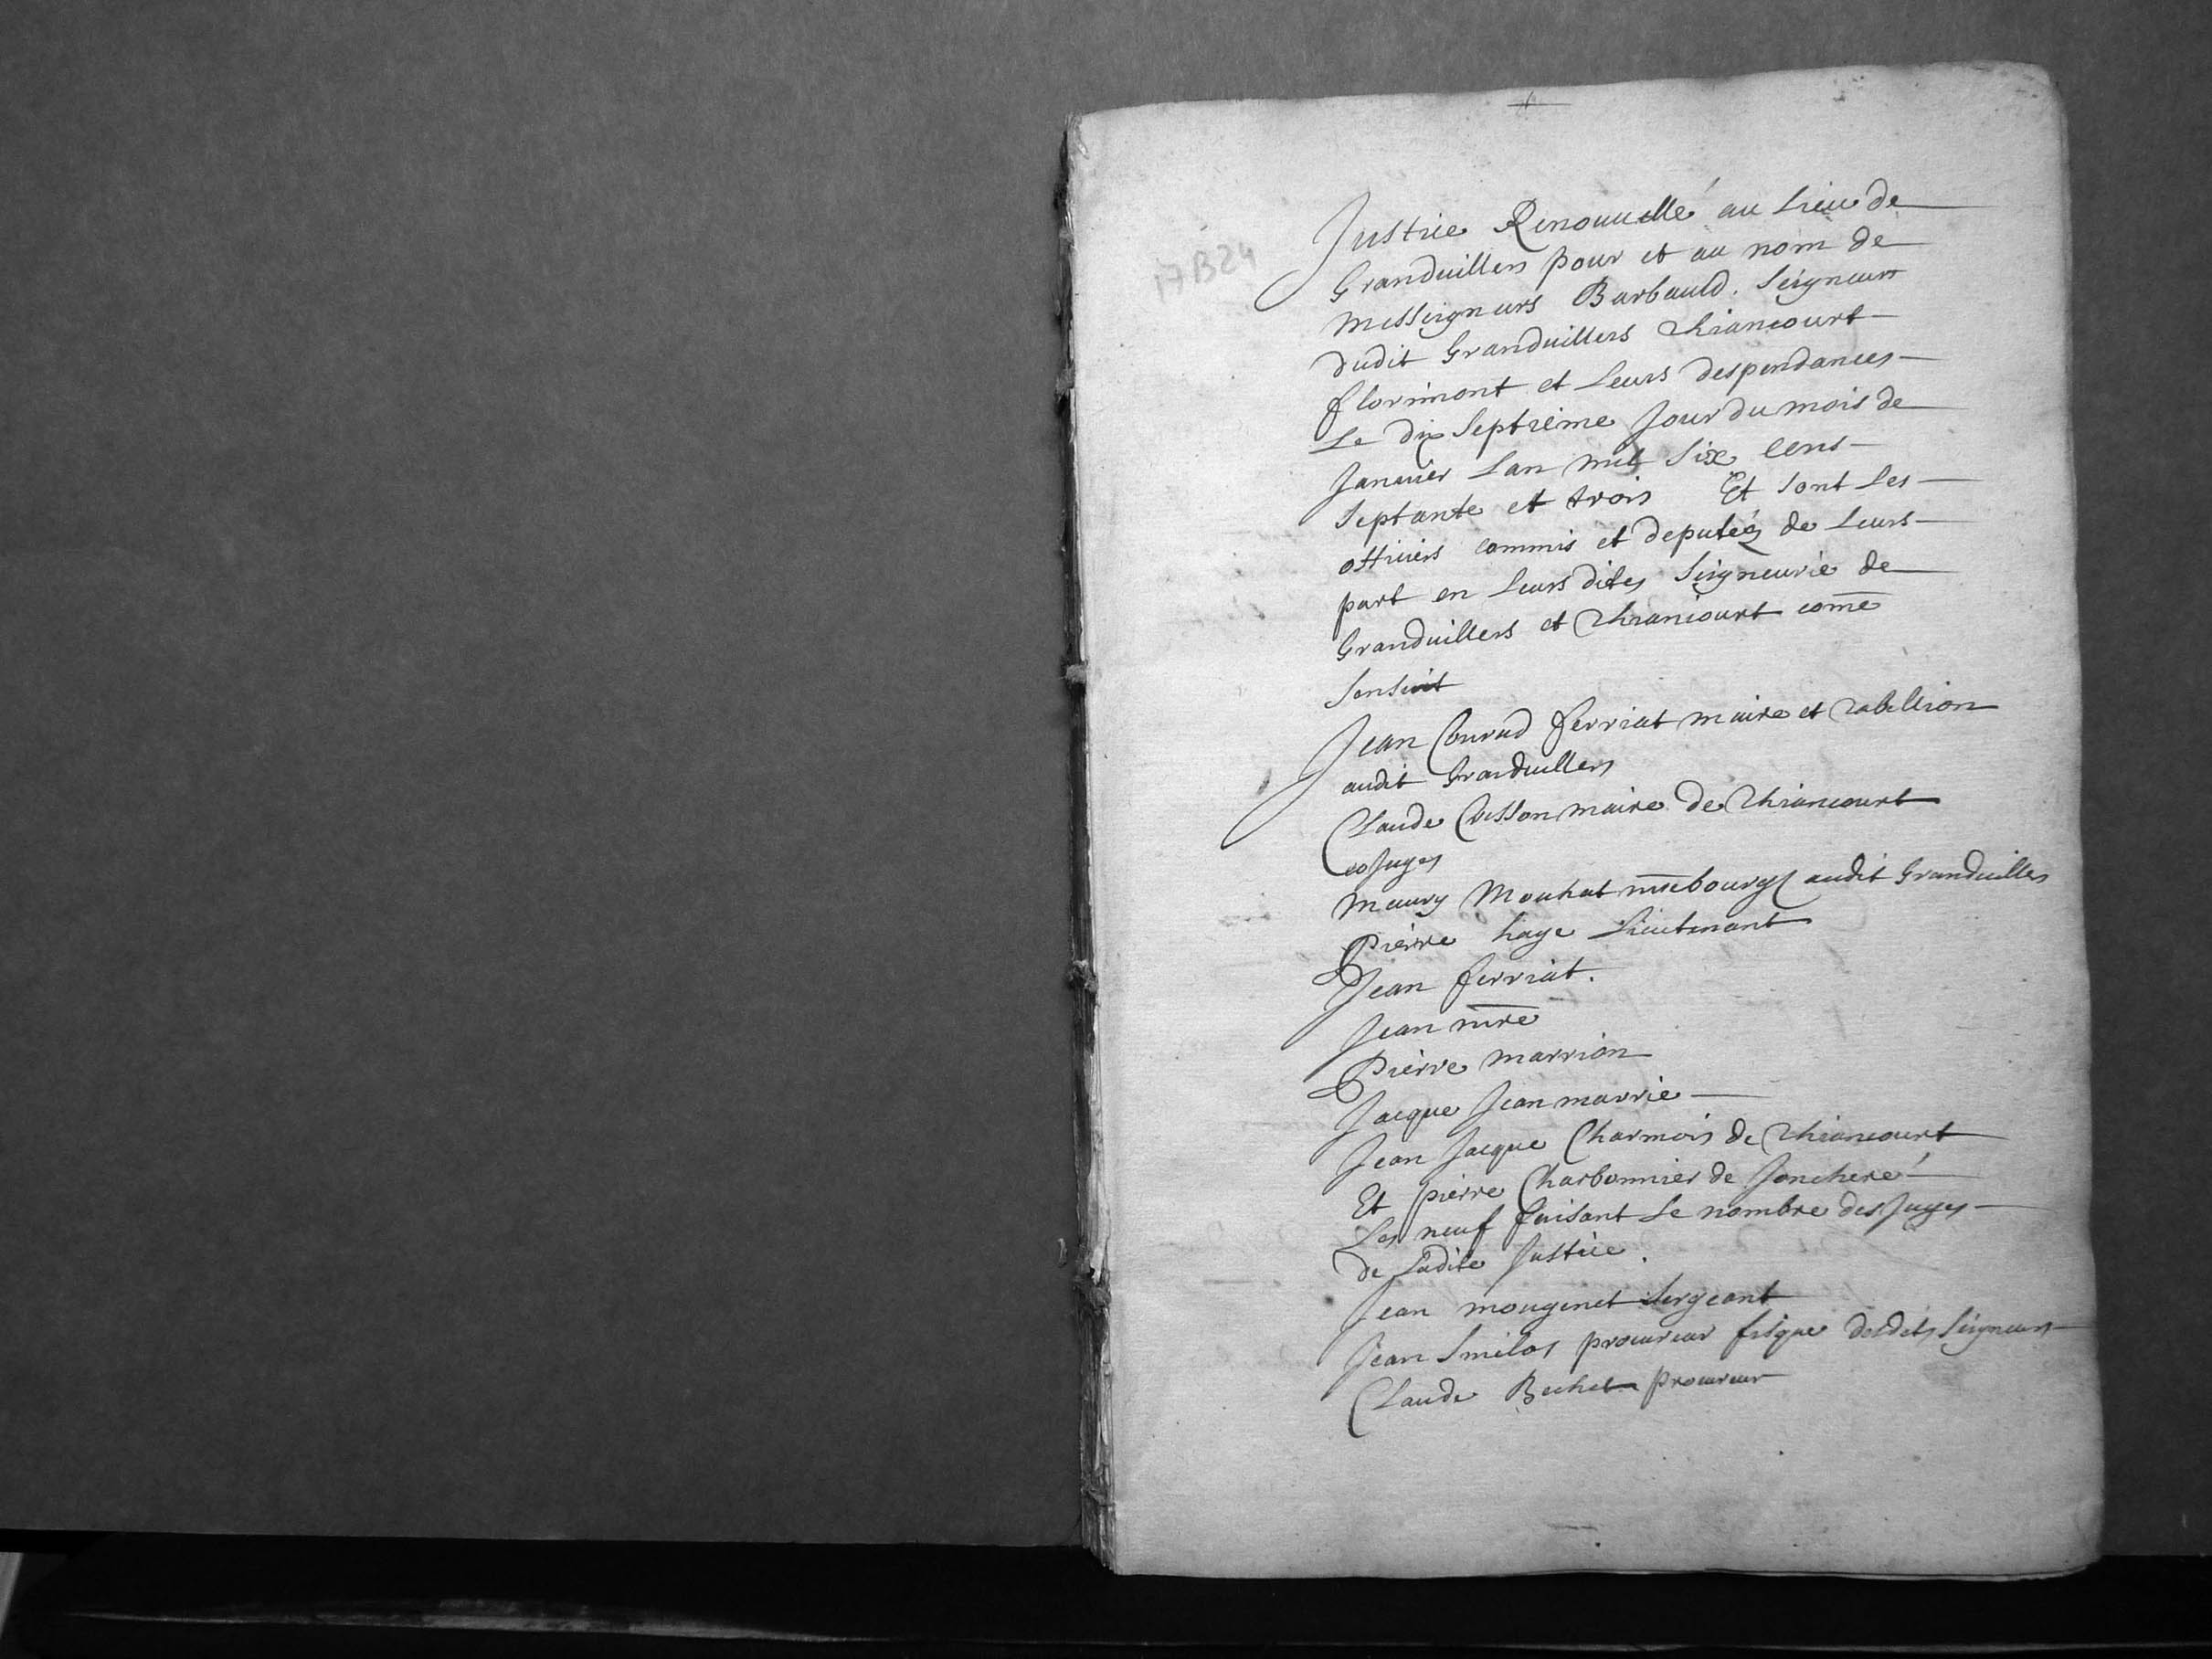 17B24
Justice Renouuellé au Lieu de
Granduillers pour et au nom de
messeigneurs Barbauld. Seigneurs
dudit Granduillers Thiancourt
florimont et Leurs despendances
Le dix Septième Jour du mois de
Januier Lan mil Six Cens
Septante et trois Et Sont Les
officiers commis et deputéz de Leurs
part en Leurs dites Seigneurie de
Granduillers et Thiancourt come
Sensuit
Jean Conrad ferriat maire et Tabellion
audit Granduillers
Claude maire de Thiancourt
cojuges
Maury Mouhat audit Granduillers
Pierre haye Lieutenant
Jean ferriat.
Jean mre
Pierre marrion
Jacque Jean marrie
Jean Jacque Charmois de Thiancourt
Et pierre Charbonnier de Joncheré
Les neuf faisant Le nombre des Juges
de Ladite Justice.
Jean mougenet Sergeant
Jean procureur fisque desdits Seigneurs
Claude Bechet procureur